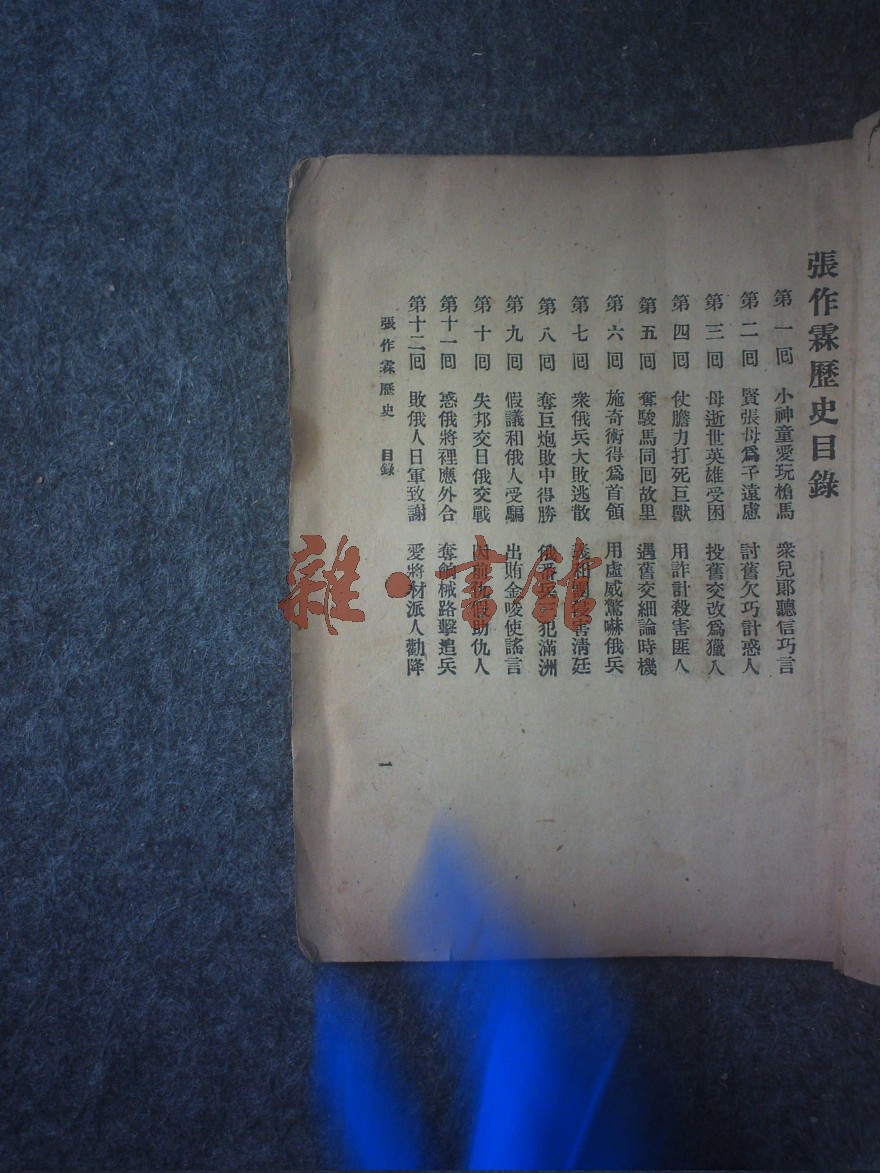 張作霖歷史目錄
第一回 小神童愛玩槍馬 衆兒郞聽信巧言
第二回 賢張母爲子遠慮 討舊欠巧計惑人
第三回 母逝世英雄受困 投舊交改爲獵人
第四回 仗膽力打死巨獸 用詐計殺害匪人
第五回 奪駿馬同回故里 遇舊交細論時機
第六回 施奇術得爲首領 用虛威驚嚇俄兵
第七回 衆俄兵大敗逃散 義和團 害淸廷
第八回 奪巨炮敗中得勝 俄番兵 犯滿洲
第九回 假議和俄人受騙 出賄金唆使謠言
第十回 失邦交日俄交戰 因前仇假助仇人
第十一回 惑俄將裡應外合 奪餉械路擊追兵
第十二回 敗俄人日軍致謝 愛將材派人勸降
張作霖歷史 目錄
一
雜·書館